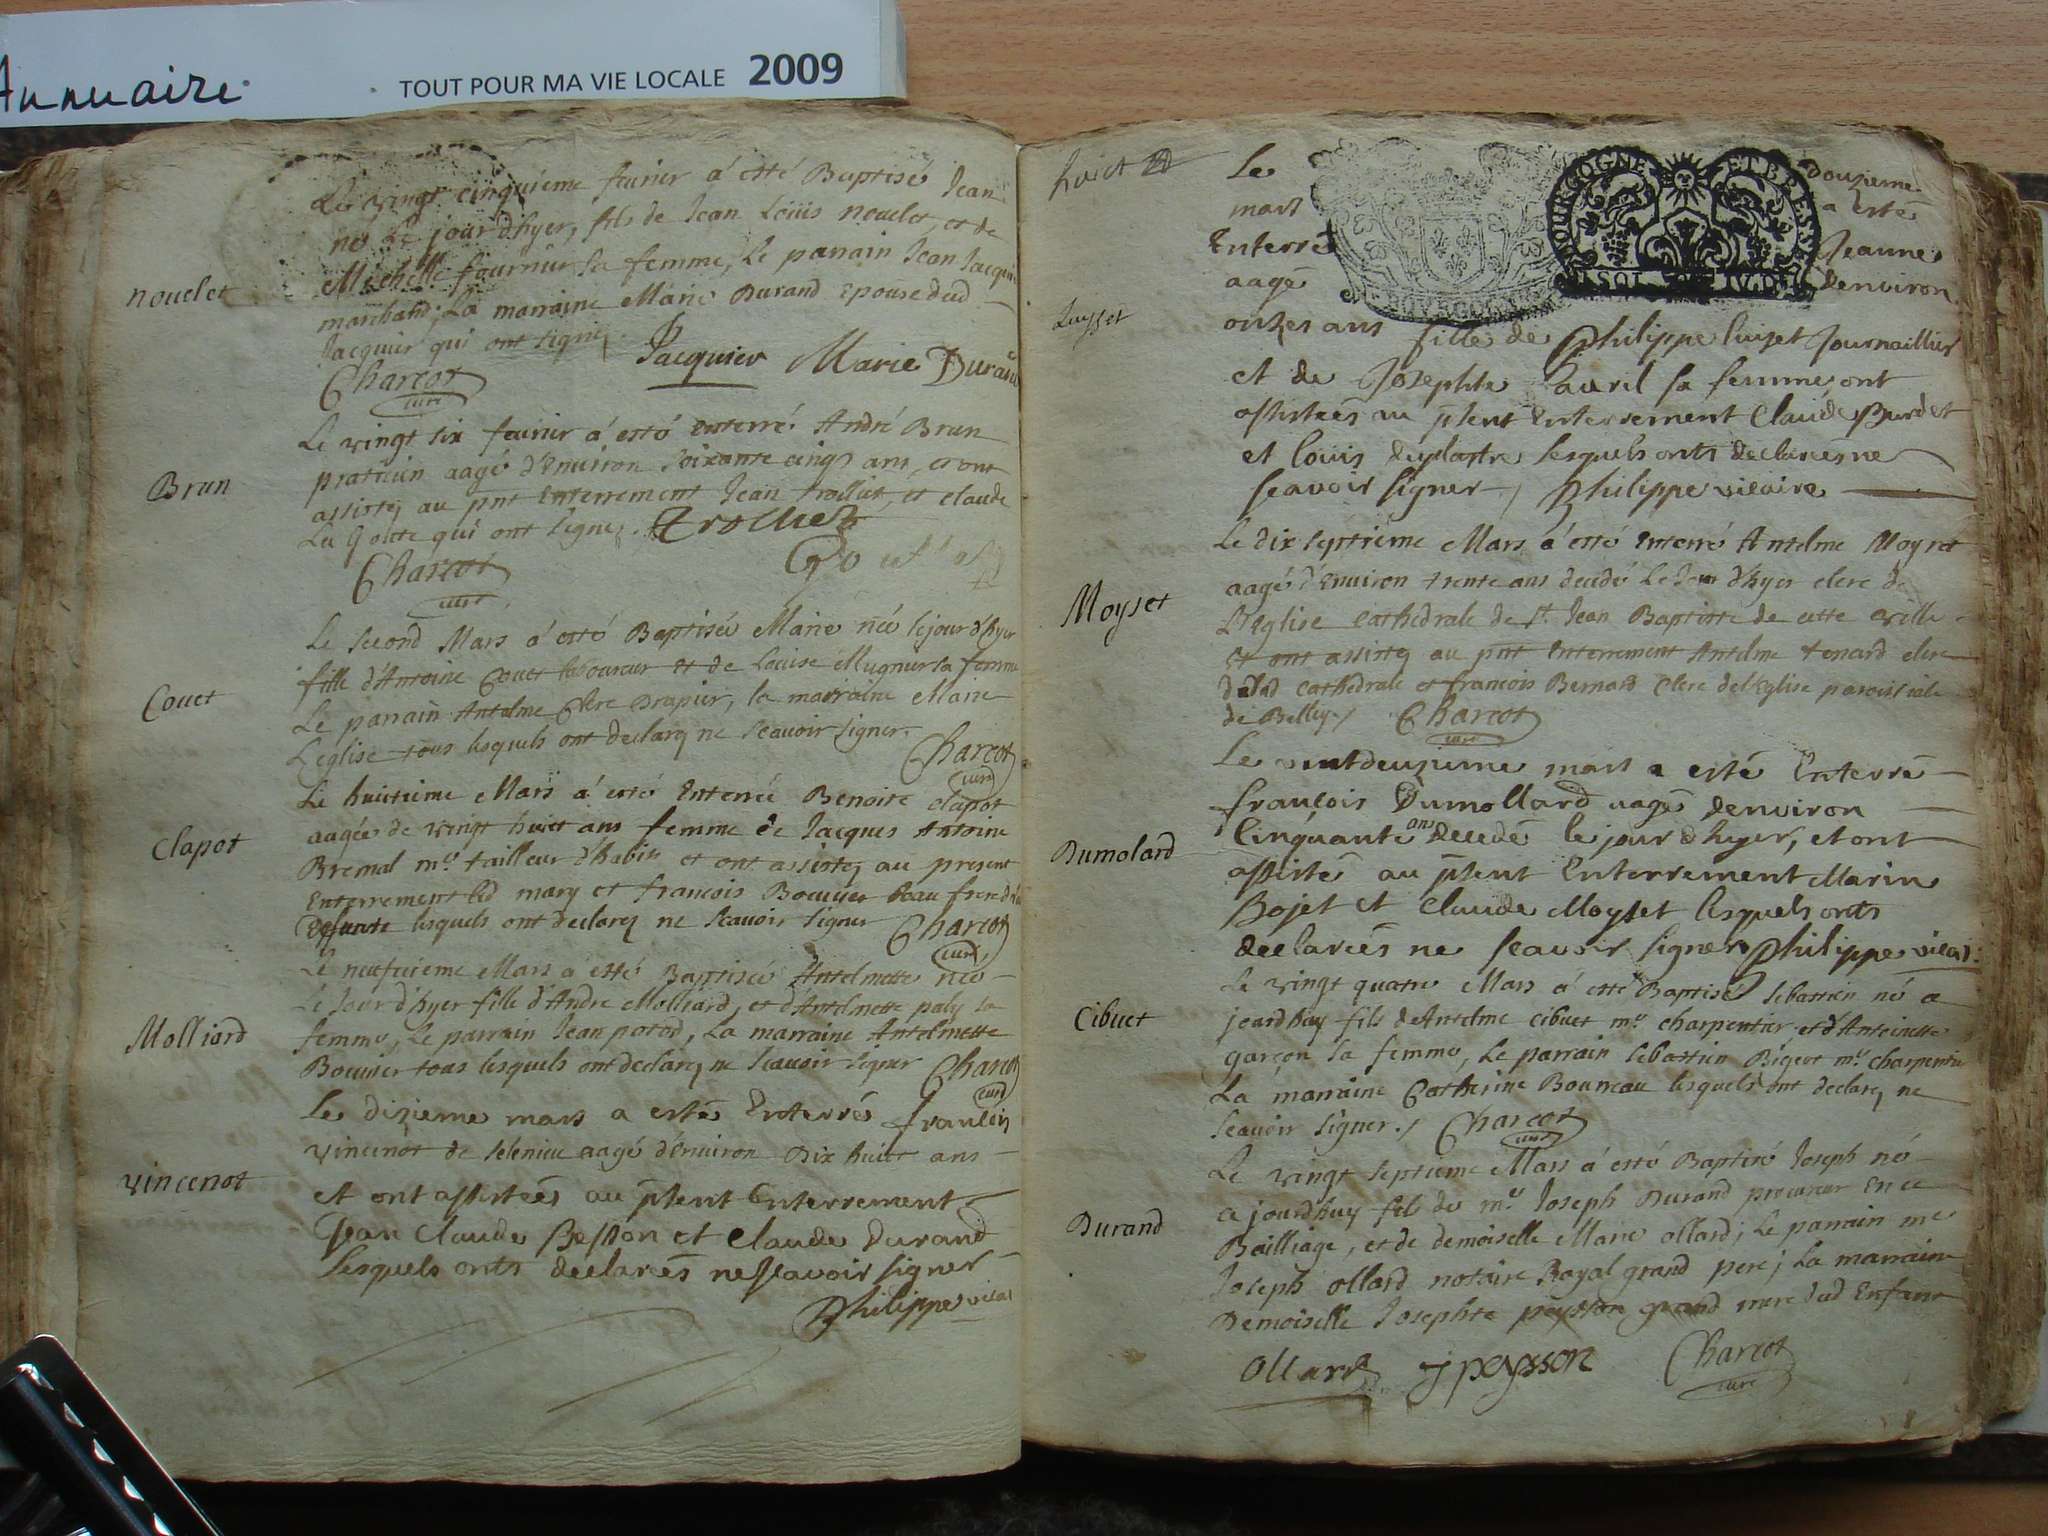 Annuaire
TOUT POUR MA VIE LOCALE 2009
Le vingt cinquieme feurier á esté Baptisé Jean
né Le jour d'hyer, fils de Jean Loüis nouelet, et de
Michelle fournier sa femme, Le parrain Jean Jacquier
nouelet
marchand; La marraine Marie Durand Epouse dud
Jacquier qui ont signé
Jacquier Marie Durand
Charcot
curé
Le vingt six feurier á esté enterré André Brun
Brun
praticien aagé d'Enuiron soixante cinq ans, et ont
assistez au pnt Enterrement Jean trolliet, et claude
La Goutte qui ont signez. Trolliet
Charcot
curé
Le second Mars á esté Baptiséé Marie néé le jour d'hyer
fille d'Antoine Couet laboureur et de Louise Mugnier sa femme
Couet
Le parrain Antelme Clerc Drapier, la marraine Marie
L'eglise tous lesquels ont declarez ne sçauoir signer.
Charcot
curé
Le huictieme Mars á esté Enterréé Benoite Clapot
Clapot
aagéé de vingt huict ans femme de Jacques Antoine
Bremal me. tailleur d'habits et ont assistez au present
Enterrement led mary et francois Bouuier Beau frere
Deffunte lesquels ont declarez ne sçauoir signer Charcot
curé
Le neufuieme Mars a esté Baptiséé Antelmette néé
Le Jour d'hyer fille d'André Molliard, et d'Antelmette paly sa
Molliard
femme, Le parrain Jean porod, La marraine Antelmette
Bouuier tous lesquels ont declarez ne sçauoir signer Charcot
curé
Le dizieme mars a esté Enterré francois
vincenot de seleniue aagé d'Enuiron Dix huict ans
vincenot
et ont assistéés au pñent Enterrement
Jean Claude Besson et Claude Durand
Lesquels onts declarés ne sçavoir signer
Philippe vicai
huict
Le douzieme
mars a esté
Enterré Jeanne
aagé denviron
BOURGOGNE ET BRESSE
Luysset
onzes ans fille de Philippe luiset Journaillier
et de Josephte avril sa femme, ont
assistéés au pñent Enterrement Claude Burdet
et Loüis deplastre Lesquels onts declarées ne
sçavoir signer / Philippe vicaire
Le dix septieme Mars á esté Enterré Antelme Moyset
Moyset
aagé d'Enuiron trente ans decédé Le Jour d'hyer clerc de
L'eglise cathedrale de St Jean Baptiste de cette ville
et ont assistez au pnt Enterrement Antelme tenard clerc
de lad cathedrale et francois Bernard Clerc de l'Eglise paroissiale
de Belley / Charcot
curé
Le vintdeuzieme mars a esté Enterré
françois Dumollard aagé denviron
Dumolard
Cinquante ans decedé le jour dhyer, et ont
assistés au pñent Enterrement Marin
Bojet et Claude Moyset lesquels onts
declarées ne sçavoir signer Philippe vicai:
Le vingt quatre Mars á esté Baptisé sebastien né a
Cibuet
jourdhuy fils de Antelme cibuet me. charpentier et d'Antoinette
garçon sa femme, Le parrain sebastien Bigeot me. charpentier
La marraine Catherine Bouueau lesquels ont declarez ne
sçauoir signer / Charcot
curé
Le vingt septieme Mars á esté Baptisé Joseph né
Durand
ce jourdhuy fils de me. Joseph Durand procureur en ce
Bailliage, et de demoiselle Marie ollard; Le parrain me
Joseph ollard notaire Royal grand pere; La marraine
Demoiselle Josephte peysson grand mere dud Enfant
Ollard J peysson Charcot
curé